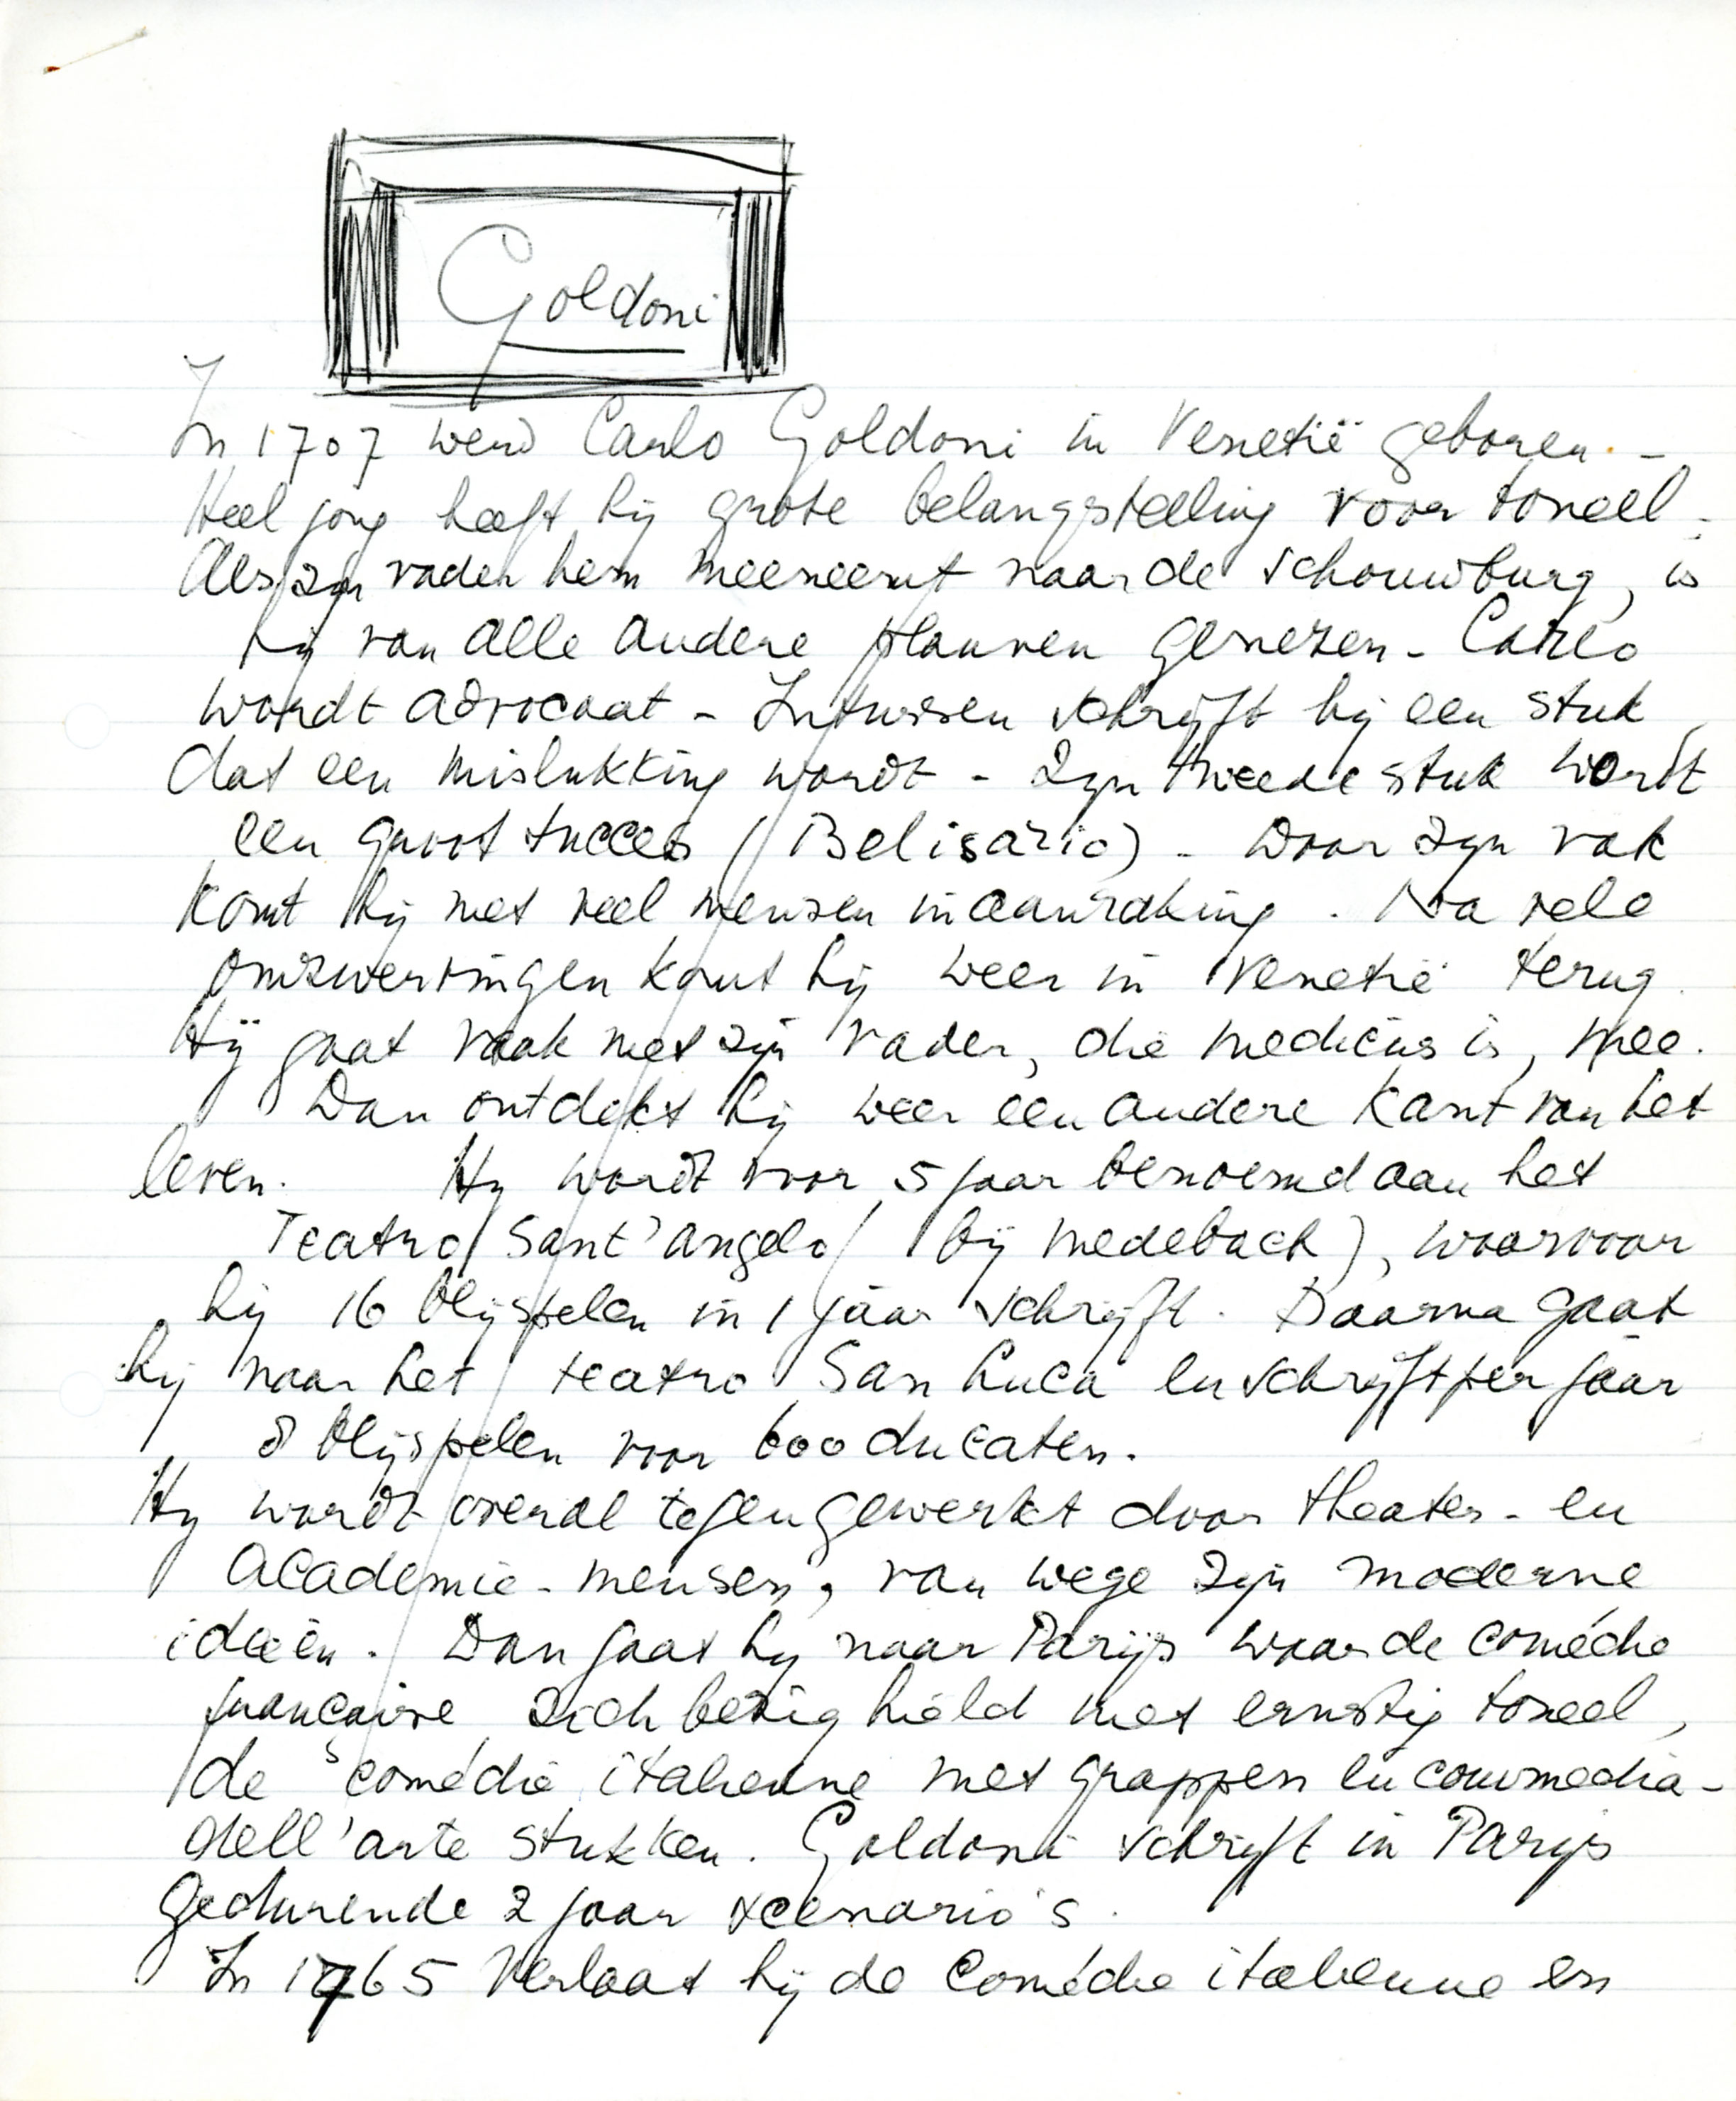 Goldoni
In 1707 werd Carlo Goldoni in Venetië geboren. -
Heel jong heeft hij grote belangstelling voor toneel -
Als zijn vader hem meeneemt naar de schouwburg, is
hij van alle andere plannen genezen - Carlo
wordt advocaat - Intussen schrijft hij een stuk
dat een mislukking wordt - Zijn tweede stuk wordt
een groot succes (Belisario) - Door zijn vak
komt hij met veel mensen in aanraking. Na vele
omzwervingen komt hij weer in Venetië terug.
Hij gaat vaak met zijn vader, die medicus is, mee.
Dan ontdekt hij weer een andere kant van het
leven. Hij wordt voor 5 jaar benoemd aan het
Teatro Sant'angelo (bij Medeback), waarvoor
hij 16 blijspelen in 1 jaar schrijft. Daarna gaat
hij naar het teatro San Luca en schrijft per jaar
8 blijspelen voor 600 ducaten.
Hij wordt overal tegengewerkt door theater- en
academie-mensen, van wege zijn moderne
ideeën. Dan gaat hij naar Parijs waar de comédie
française zich bezig hield met ernstig toneel,
de comédie italienne met grappen en commedia-
dell'arte stukken. Goldoni schrijft in Parijs
gedurende 2 jaar scenario's.
In 1765 verlaat hij de Comédie italienne en